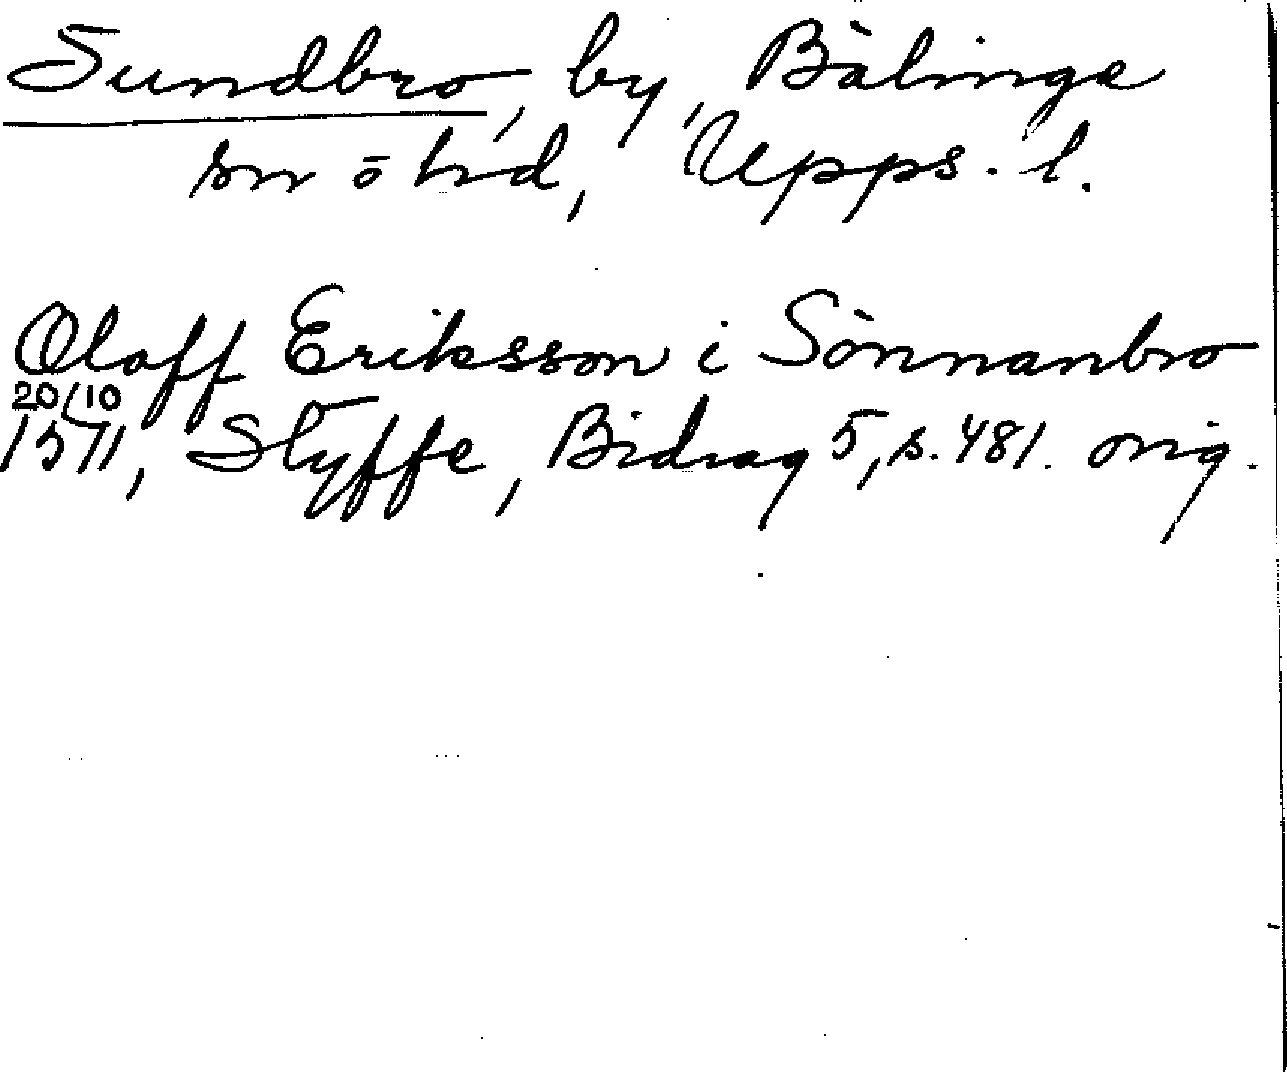 Sundbro, by, Bälinge
sn o hd, Upps. l.
Oloff Eriksson i Sönnanbro
20/10
1511, Styffe, Bidrag 5, s. 481. orig.